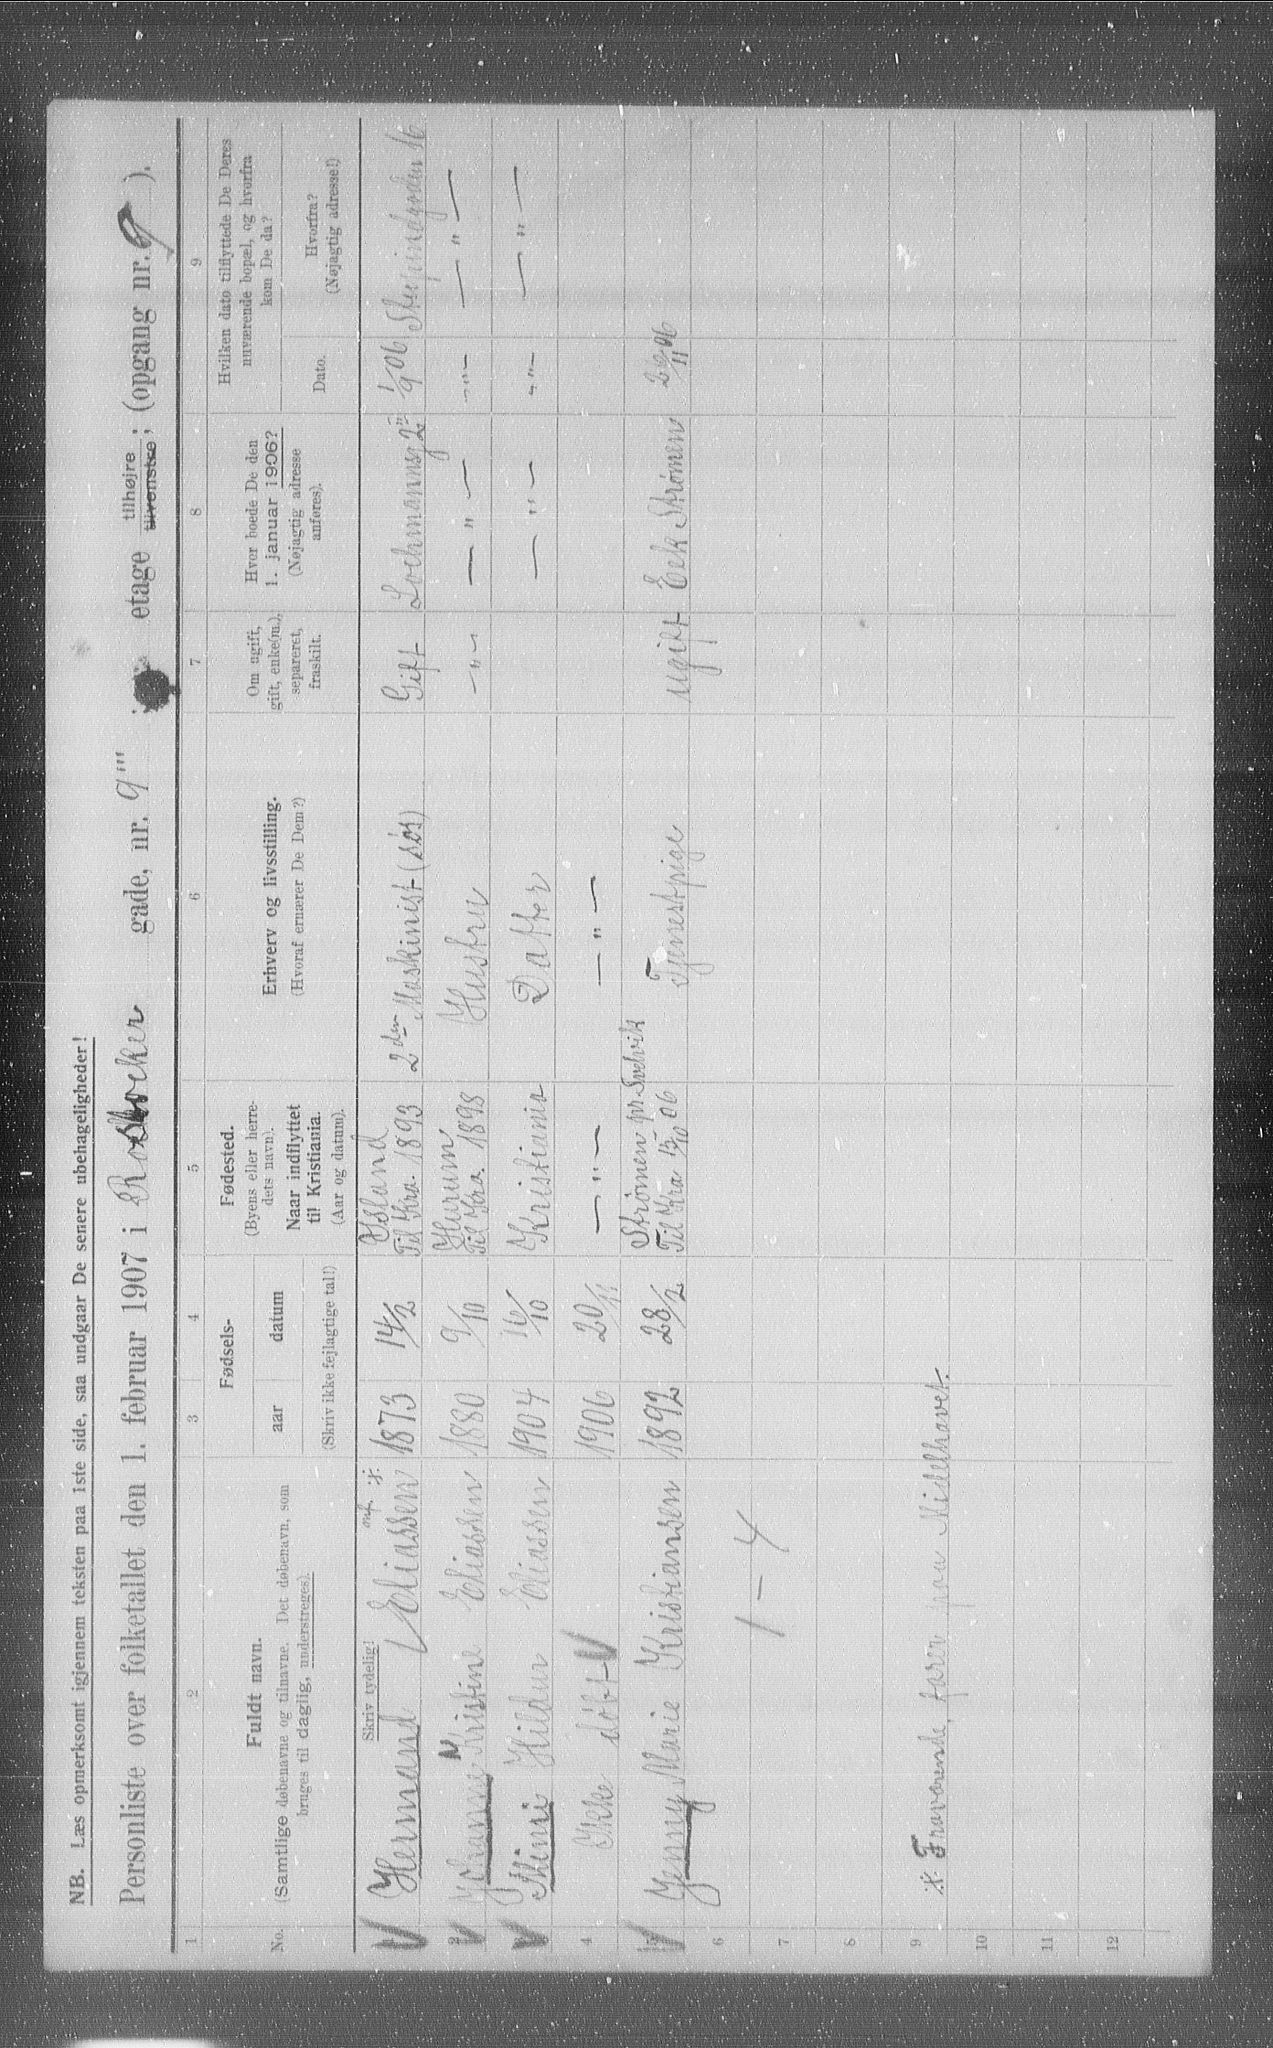 NB. Læs opmerksomt igjennem teksten paa 1ste side, saa undgaar De senere ubehageligheder!
Personliste over folketallet den 1. februar 1907 i gade, nr. 9''' etage tilhøjre tilvenstre; (opgang nr. 9 ).
1 2 3 4 5 6 7 8 9
No.
Fuldt navn.
(Samtlige døbenavne og tilnavne. Det døbenavn, som
bruges til daglig, understreges).
Skriv tydelig!
Fødsels-
aar datum
(Skriv ikke fejlagtige tal!)
Fødested.
(Byens eller herre-
dets navn).
Naar indflyttet
til Kristiania.
(Aar og datum).
Erhverv og livsstilling.
(Hvoraf ernærer De Dem?)
Om ugift,
gift, enke(m.),
separeret,
fraskilt.
Hvor boede De den
1. januar 1906?
(Nøjagtig adresse
anføres).
Hvilken dato tilflyttede De Deres
nuværende bopæl, og hvorfra
kom De da?
Dato.
Hvorfra?
(Nøjagtig adresse!)
1 Hermand Eliassen mf. 1873 14/2 Til Kra. 1893 2den Maskinist (Gift Lochmannsg 2 1/9 06 16
2 Johanne Kristine Eliassen 1880 9/10 Hurum Til Kra. 1898 Hustru —"— —"— —"— —"—
3 Hildur Eliassen 1904 16/10 Kristiania Datter —"— —"— —"—
4 Ikke døbt 1906 20/11 —"— —"—
5 Jenny Marie Kristiansen 1892 28/2 Strømen pr. Svelvik Til Kra 06 Tjenestpige ugift Eek Strømen 06
6
1 — 4
7
8
9 Fraværende, farer paa Midelhavet.
10
11
12